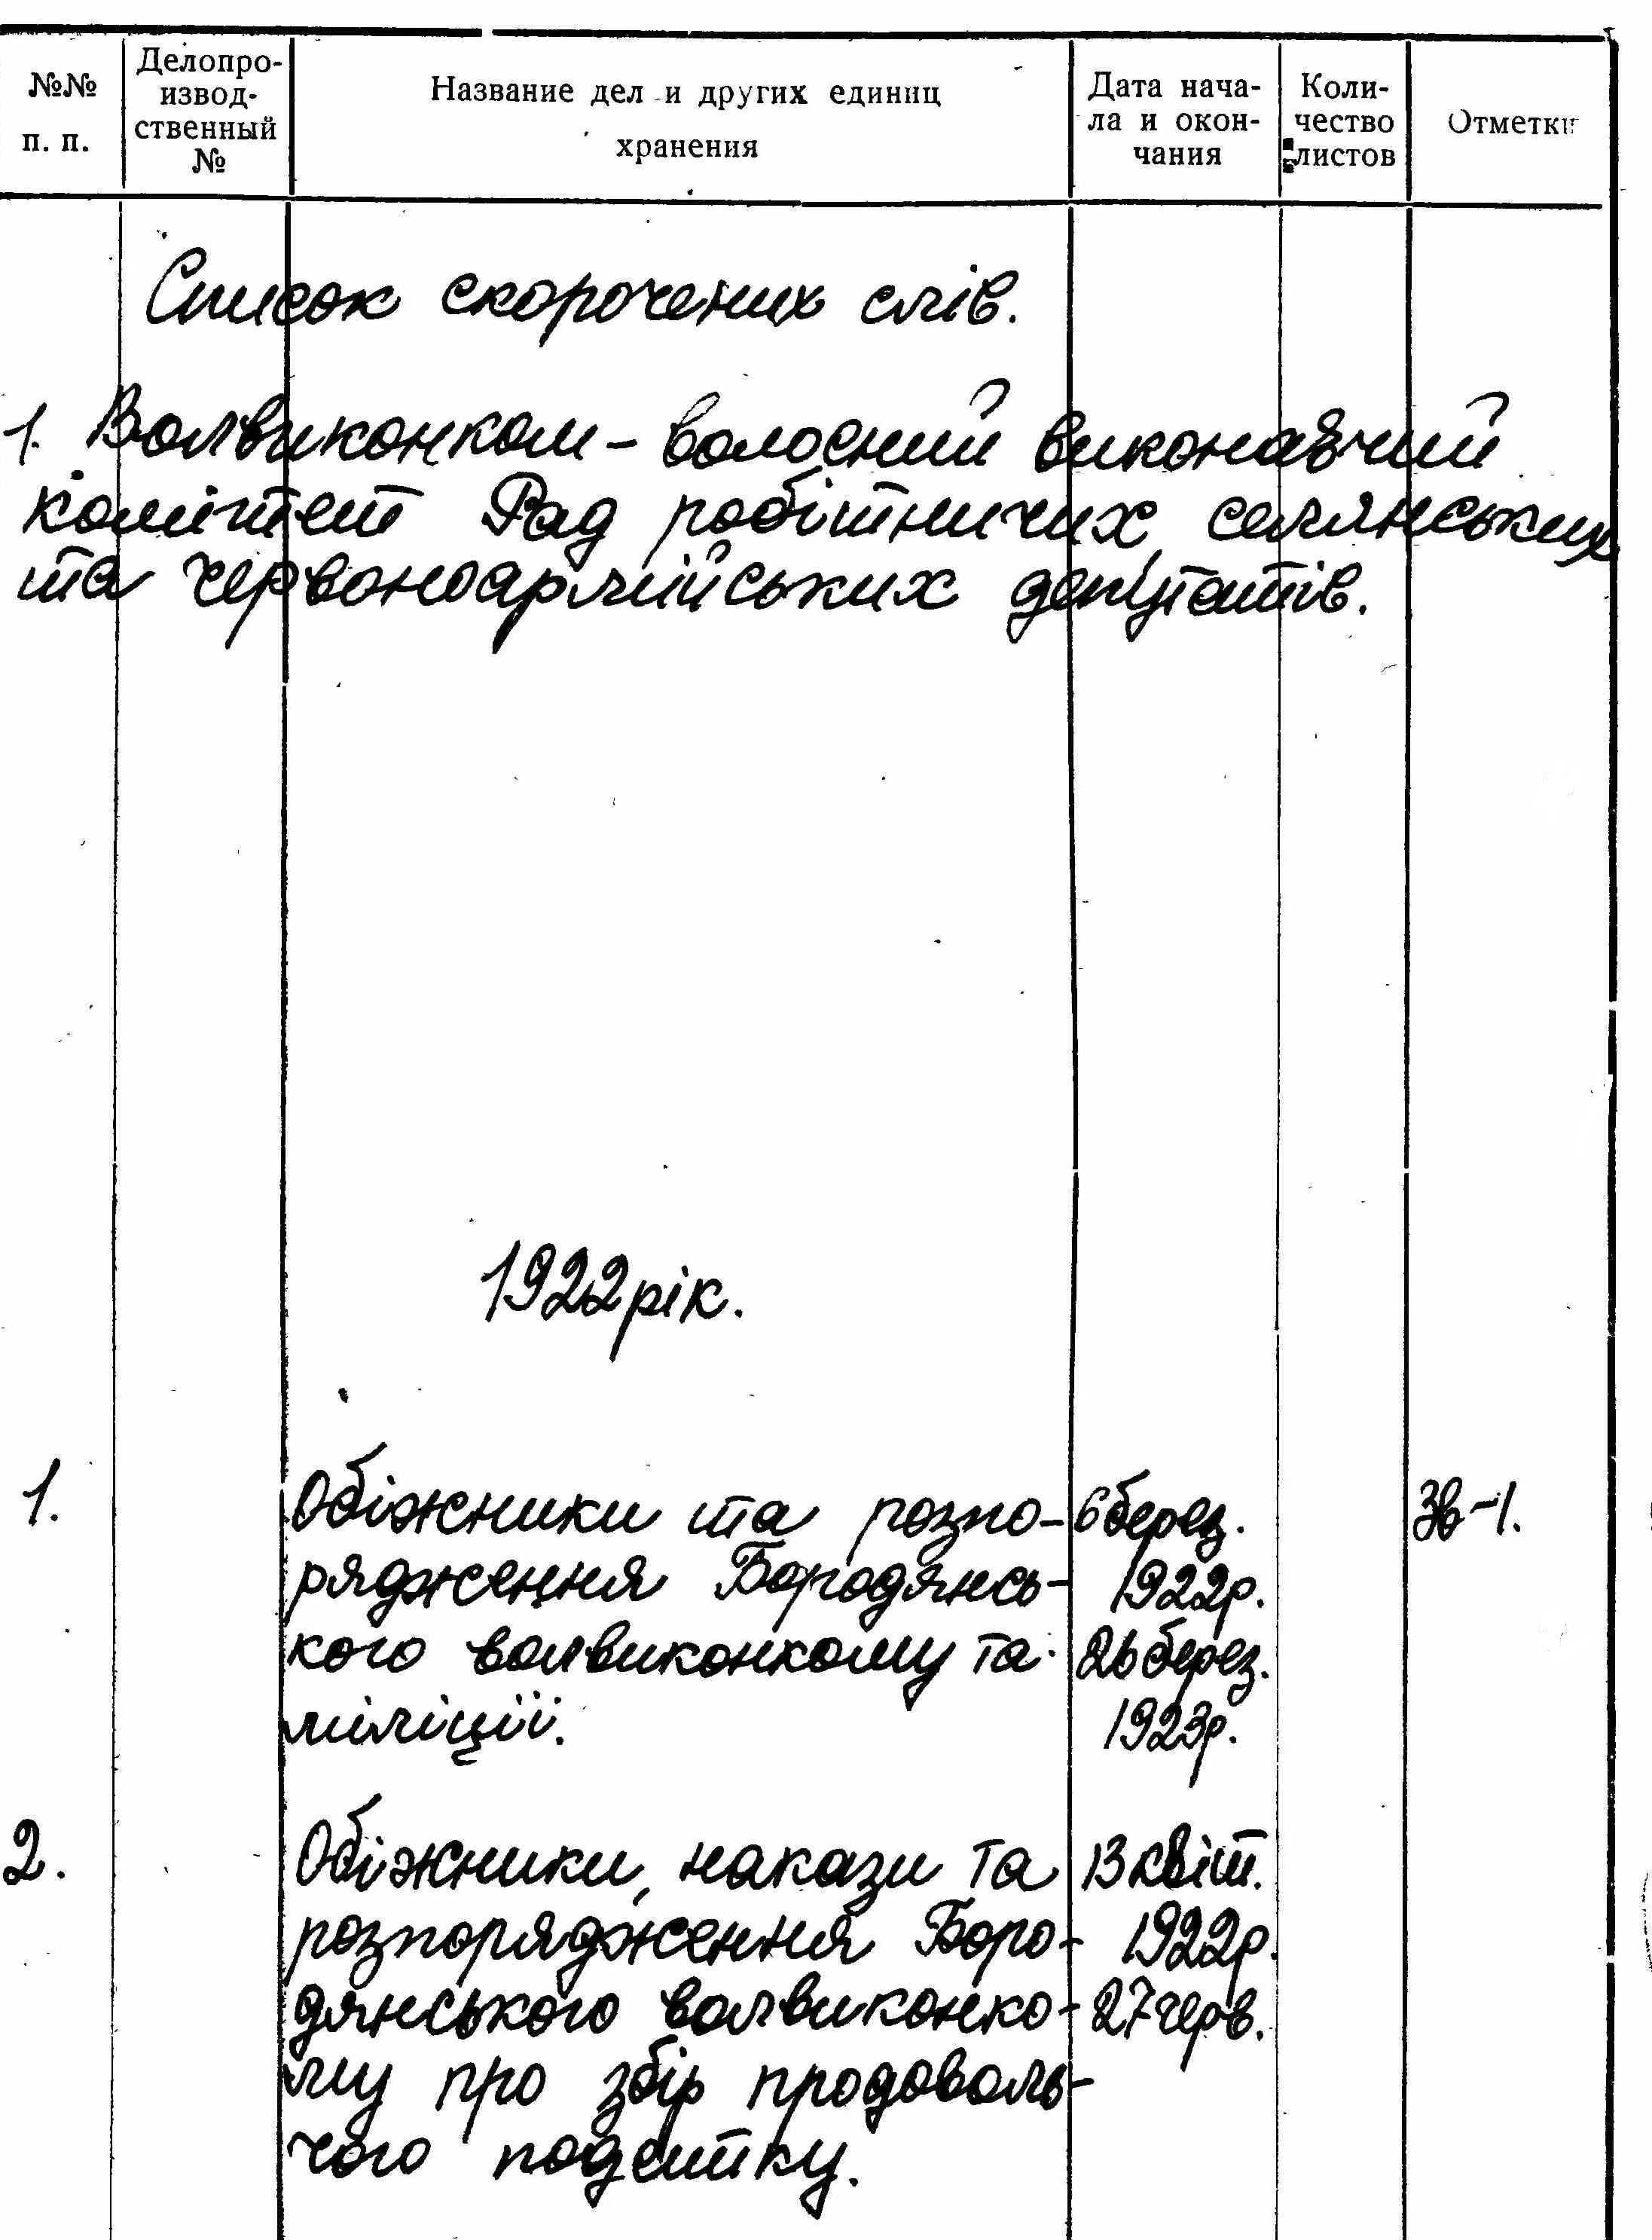 №№ п. п.
Делопро-
извод-
ственный
№
Название дел и других единиц
хранения
Дата нача-
ла и окон-
чания
Коли-
чество
листов
Отметки
Список скорочених слів.
1. Волвиконком - волосний виконавчий
комітет Рад робітничих, селянських
та червоноармійських депутатів.
1922 рік.
1. Обіжники та розпо- 6 берез. Зв-1.
рядження Бородянсь- 1922р.
кого волвиконкому та 26 берез.
міліції. 1923р.
2. Обіжники, накази та 13 квіт.
розпорядження Боро- 1922р.
дянського волвиконко- 27 черв.
му про збір продоволь-
чого податку.